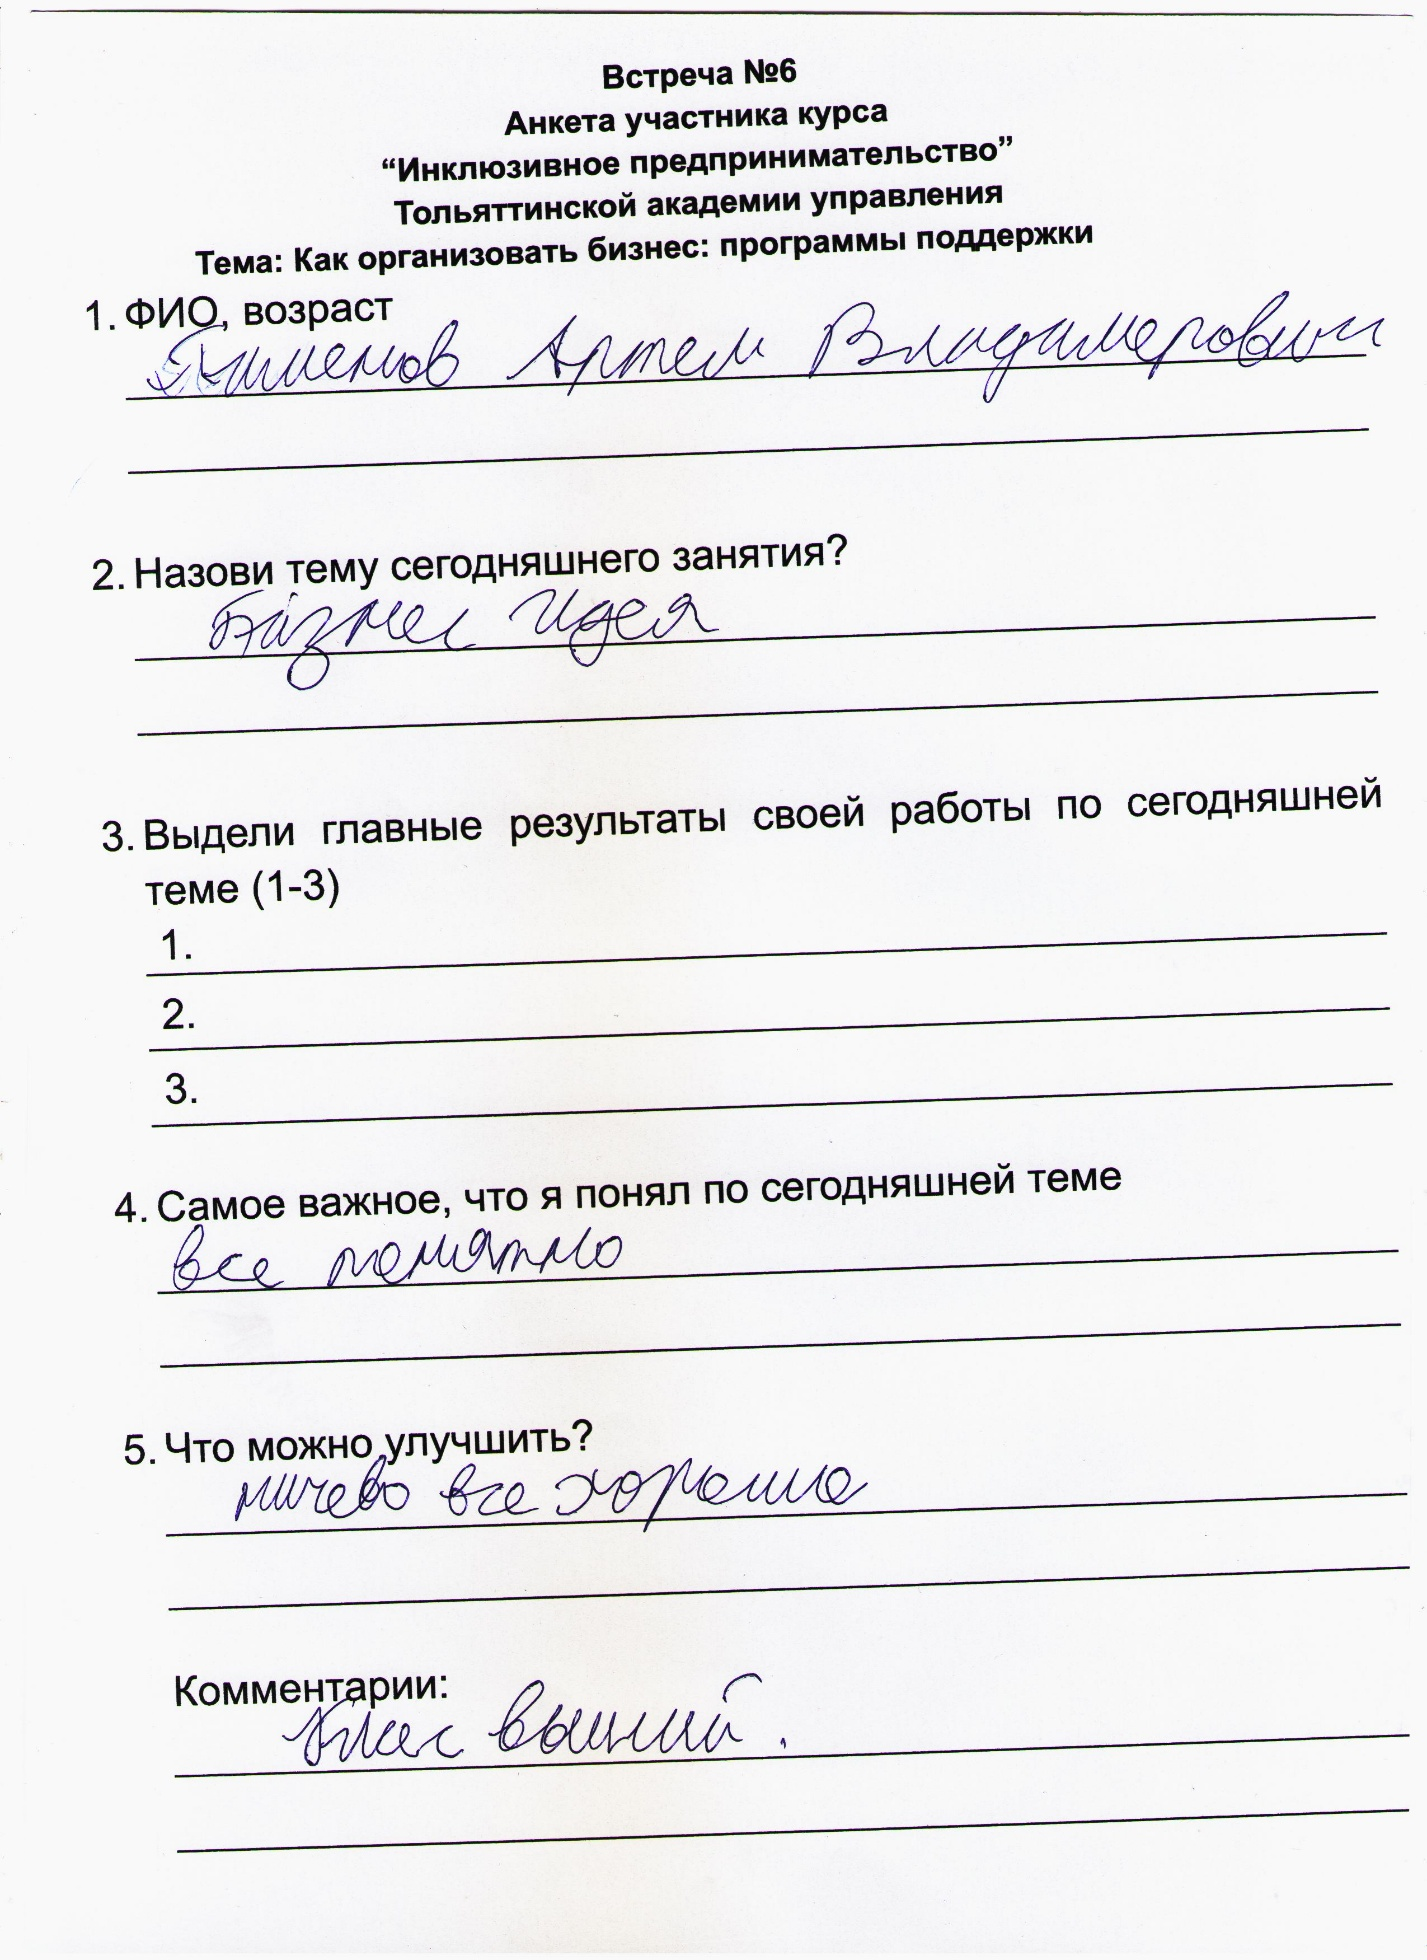 Встреча №6
Анкета участника курса
“Инклюзивное предпринимательство”
Тольяттинской академии управления
Тема: Как организовать бизнес: программы поддержки
1. ФИО, возраст
Артем Владимерович
2. Назови тему сегодняшнего занятия?
Бизнес идея
3. Выдели главные результаты своей работы по сегодняшней
теме (1-3)
1.
2.
3.
4. Самое важное, что я понял по сегодняшней теме
все понятно
5. Что можно улучшить?
ничево все хорошо
Комментарии:
Клас вышый.